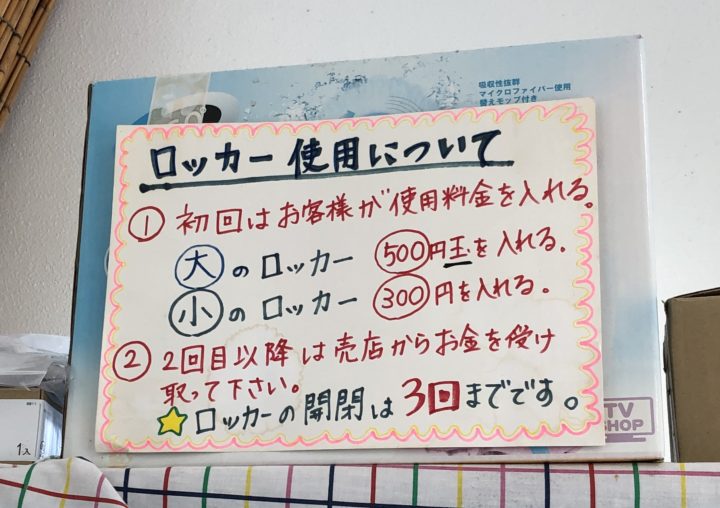 吸収性抜群
マイクロファイバー使用
替えモップ付き
ロッカー使用について
① 初回はお客様が使用料金を入れる。
大のロッカー 500円玉を入れる.
小のロッカー 300円を入れる。
② 2回目以降は売店からお金を受け
取って下さい。
☆ロッカーの開閉は3回までです。
TV
SHOP
1入